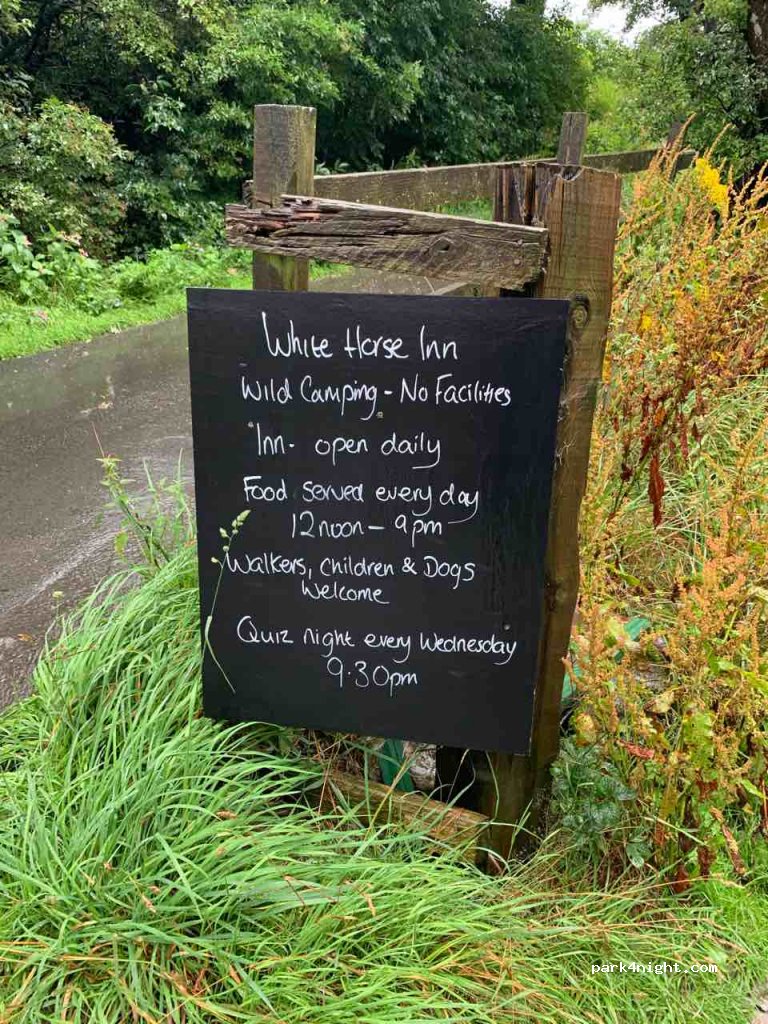 White Horse Inn
Wild Camping - No Facilities
Inn - open daily
Food served every day
12noon - 9pm
Walkers, Children & Dogs
Welcome
Quiz night every Wednesday
9.30pm
park4night.com